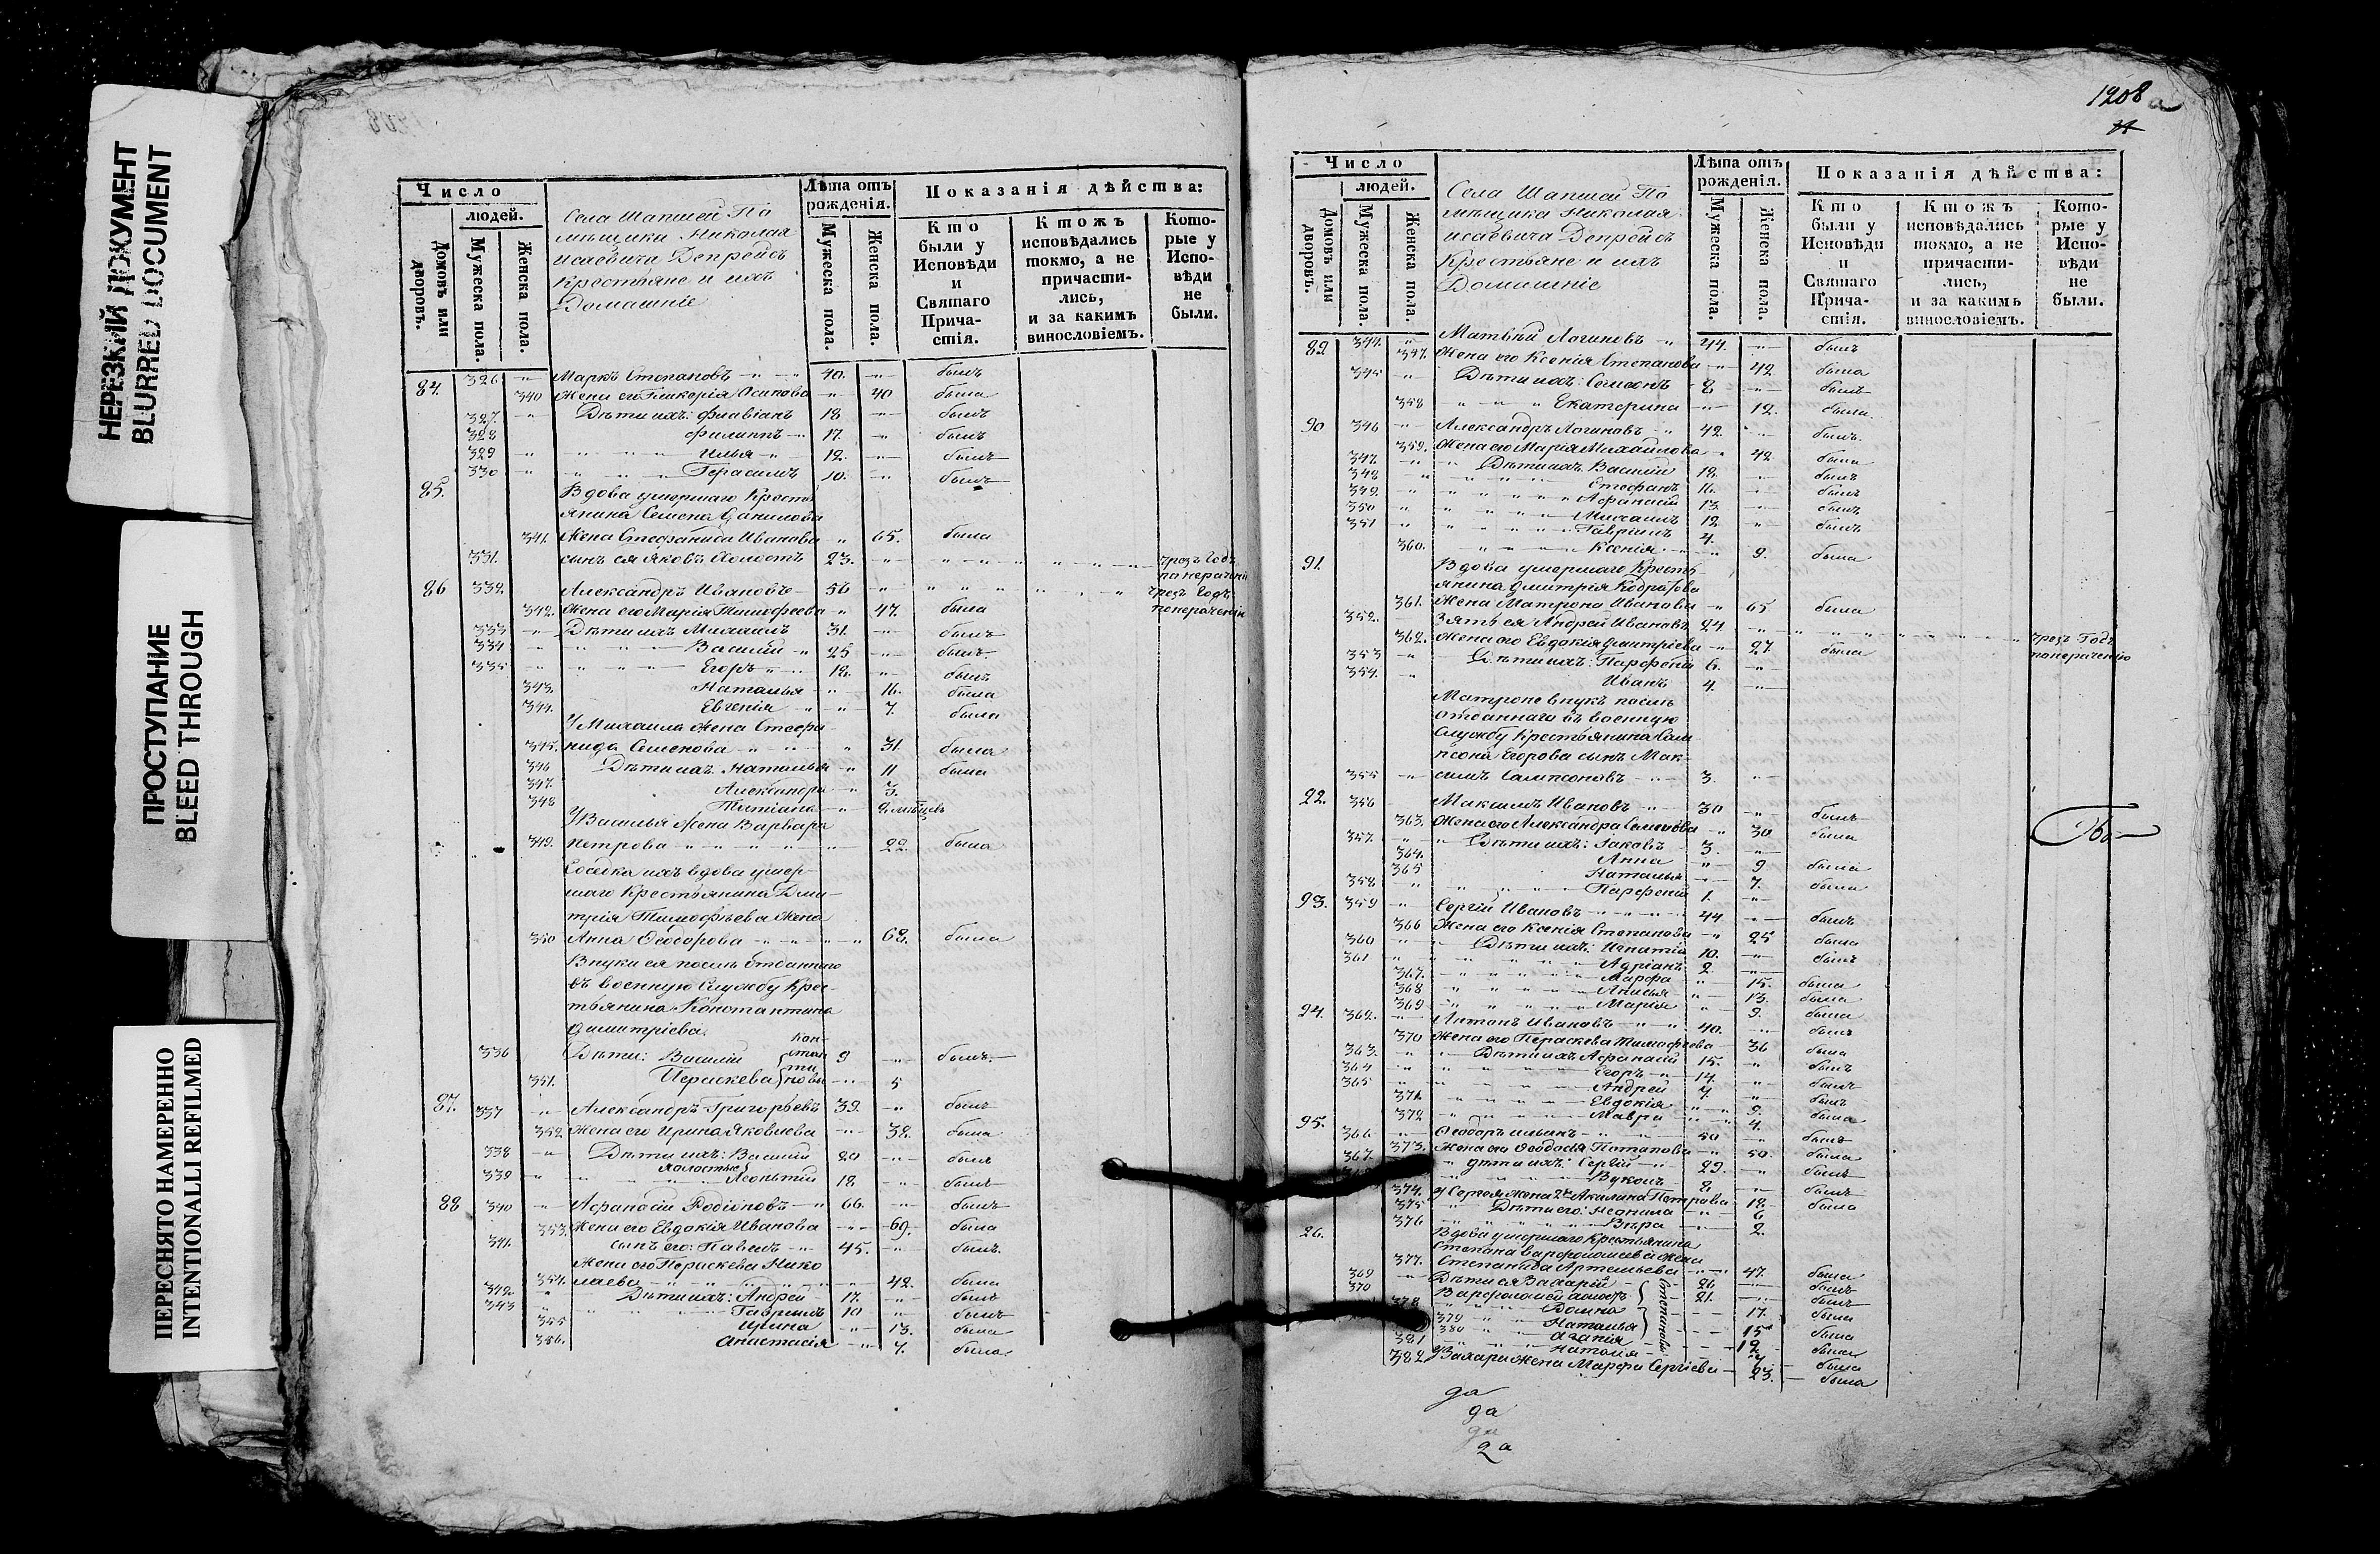 НЕРЕЗКИЙ ДОКУМЕНТ
BLURRED DOCUMENT
ПРОСТУПАНИЕ
BLEED THROUGH
ПЕРЕСНЯТО НАМЕРЕННО
INTENTIONALLI REFILMED
Число
людей.
Домовъ или дворовъ.
Мужеска пола.
Женска пола.
Села Шапшей По
мѣщика Николая
Исаевича Депрейсъ
Крестьяне и ихъ
Домашніе
Лѣта отъ рожденія.
Мужеска пола.
Женска пола.
Показанія дѣйства:
Кто были у Исповѣди и Святаго Причастія.
Ктожъ исповѣдались токмо, а не причастились, и за какимъ винословіемъ.
Которые у Исповѣди не были.
84. 326 Маркъ Степановъ 40. былъ
340 Жена его Гликерія Осипова 40 была
327. Дѣти ихъ: Флавіанъ 18 былъ
328 Филиппъ 17. былъ
329 Илья 12. былъ
330 Герасимъ 10. былъ
85. Вдова умершаго Кресть
янина Семена Данилова
341. Жена Стефанида Иванова 65. была
331. сынъ ея Яковъ Холостъ 23. чрезъ Годъ
86 332. Александръ Ивановъ 56 чрезъ Годъ
342. Жена его Марія Тимофеева 47. была
333 Дѣти ихъ Михаилъ 31. былъ
334 Василій 25 былъ
335 Егоръ 18. былъ
343. Наталья 16. была
344. Евгенія 7. была
У Михаила Жена Стефа
345. нида Семенова 31. была
346 Дѣти ихъ: Наталья 11 была
347. Александра 3.
348 Татіана
У Василья Жена Варвара
349. Петрова 22. была
Соседка ихъ вдова умер-
шаго Крестьянина Дми-
трія Тимофѣева Жена
350 Анна Ѳеодорова 62. была
Внуки ея послѣ отданнаго
въ военную Службу Крес-
тьянина Константина
Димитріева.
336 Дѣти: Василій 9 былъ
351. Параскева 5
87. 337 Александръ Григорьевъ 39. былъ
352. Жена его Ирина Яковлева 38. была
338 Дѣти ихъ: Василій 20 былъ
холостые
339 Леонтій 18 былъ
88 340 Афанасій Родіоновъ 66. былъ
353. Жена его Евдокія Иванова 69. была
341. сынъ его: Павелъ 45. былъ
Жена его Параскева Нико
354. лаева 42. была
342. Дѣти ихъ: Андрей 17. былъ
343 Гавріилъ 10 былъ
355 Ирина 13. была
356. Анастасія 7. была
1908 а
Число
людей.
Домовъ или дворовъ.
Мужеска пола.
Женска пола.
Села Шапшей По
мѣщика Николая
Исаевича Депрейсъ
Крестьяне и ихъ
Домашніе
Лѣта отъ рожденія.
Мужеска пола.
Женска пола.
Показанія дѣйства:
Кто были у Исповѣди и Святаго Причастія.
Ктожъ исповѣдались токмо, а не причастились, и за какимъ винословіемъ.
Которые у Исповѣди не были.
89 344. Матвѣй Логиновъ 44. былъ
357. Жена его Ксенія Степанова 42 была
345 Дѣти ихъ: Семеонъ 8 былъ
358 Екатерина 12. была
90 346 Александръ Логиновъ 42. былъ
359. Жена его Марія Михайлова 42 была
347. Дѣти ихъ Василій 18. былъ
348 Стефанъ 16. былъ
349. Афанасій 13. былъ
350 Михаилъ 12 былъ
351 Гавріилъ 4.
360. Ксенія 9. была
91. Вдова умершаго Кресть
янина Димитрія
361. Жена Матрона Иванова 65 была
352. Зять ея Андрей Ивановъ 24. чрезъ Годъ
362. Жена его Евдокія Димитріева 27. была
353 Дѣти ихъ: Парфеній 6.
354. Иванъ 4.
Матроне внукъ послѣ
отданнаго въ военную
Службу Крестьянина Сам
псона Егорова сынъ Мак-
355 симъ Сампсоновъ 3.
92. 356 Максимъ Ивановъ 30 былъ
363. Жена его Александра Семенова 30 была
357. Дѣти ихъ: Іаковъ 3.
364. Анна 9 была
365 Наталья 7. была
358 Парфеній 1.
93. 359 Сергій Ивановъ 44 былъ
366 Жена его Ксенія Степанова 25 была
360 Дѣти ихъ: Игнатій 10. былъ
361 Адріанъ 2.
367. Марфа 15. была
368 Анисья 13. была
369 Марія 9. была
94. 362. Антонъ Ивановъ 40. былъ
370 Жена его Параскева Тимофеева 36 была
363. Дѣти ихъ Афанасій 15. былъ
364 Егоръ 14. былъ
365 Андрей 7. былъ
371. Евдокія 9. была
372 Мавра 4.
95. 366 Ѳеодоръ Ильинъ 50 былъ
373. Жена его Ѳеодосія Потапова 50. была
367. Дѣти ихъ: Сергій 29. былъ
Вуколъ 8 былъ
374. У Сергея жена 2я Акилина Петрова 18 была
375 Дѣти его: Неонила 6
376 Вѣра 2.
96. Вдова умершаго Крестьянина
Степана Варфоломеева Жена
377. Степанида Артемьева 47. была
369 Дѣти ея Захарій 26 былъ
370 Варфоломей холостъ 21. былъ
378 Домна 17. была
379 Наталья 15 была
380 Агапія 12 была
381 Наталія была
382. У Захара Жена Марфа Сергіева 23. была
да
да
да